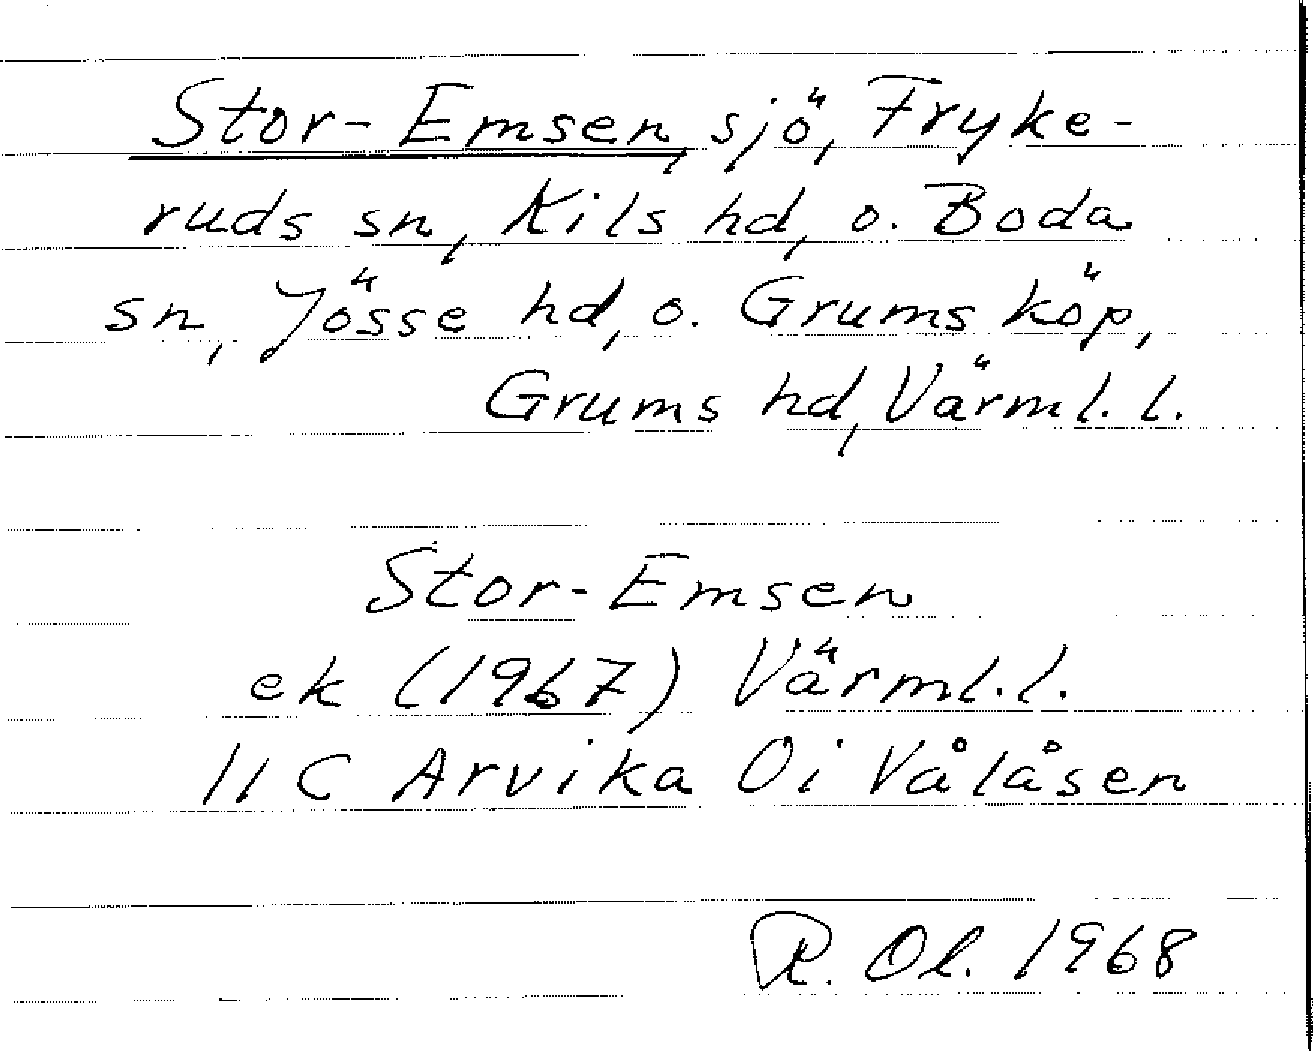 Stor-Emsen, sjö, Fryke-
ruds sn, Kils hd, o. Boda
sn, Jösse hd, o. Grums köp,
Grums hd, Värml. l.
Stor-Emsen
ek (1967) Värml. l.
11 C Arvika 0i Vålåsen
R. Ol. 1968